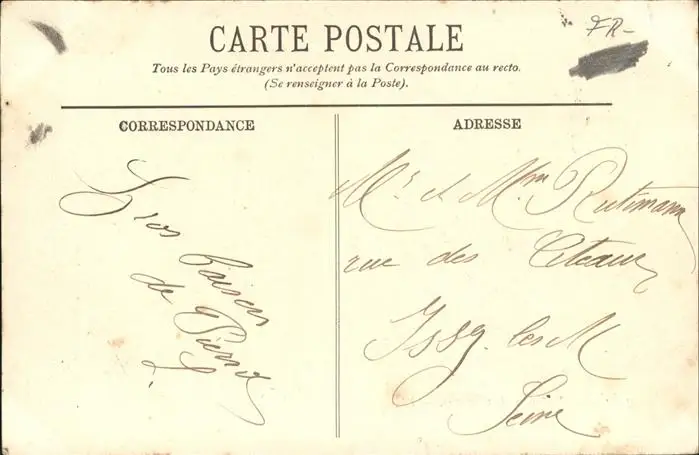 FR-
CARTE POSTALE
Tous les Pays étrangers n'acceptent pas la Correspondance au recto.
(Se renseigner à la Poste).
CORRESPONDANCE
Gros baisers
de Pierrot
ADRESSE
Mr et Mme Rutimann
rue des Citeaux
Issy. les M.
Seine